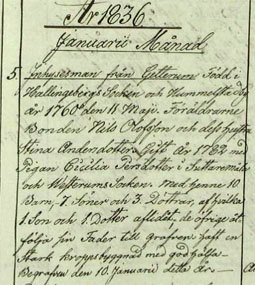 År 1836
Januarii Månad
5. Inhysesman från Gillerum Född i
Hallingebergs Socken och Hummelstad
år 1760 den 11 Maji. Föräldrarne
Bonden Nils Olofson och dess hustru
Stina Andersdotter. Gift år 1782 med
Pigan Cicilia Persdotter i
och Westerums Socken. Med henne 10
Barn, 7. Söner och 3. Döttrar, af hvilka
1. Son och 1. Dotter aflidet. de öfrige att
följa sin Fader till grafven. haft en
Stark kroppsbyggnad med god hälsa.
Begrafven den 10 Januarii detta år